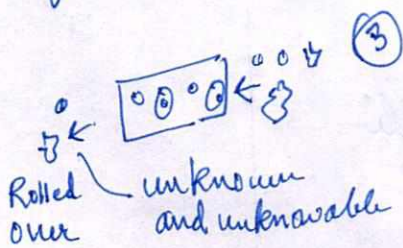 3
Rolled over
unknown and unknowable